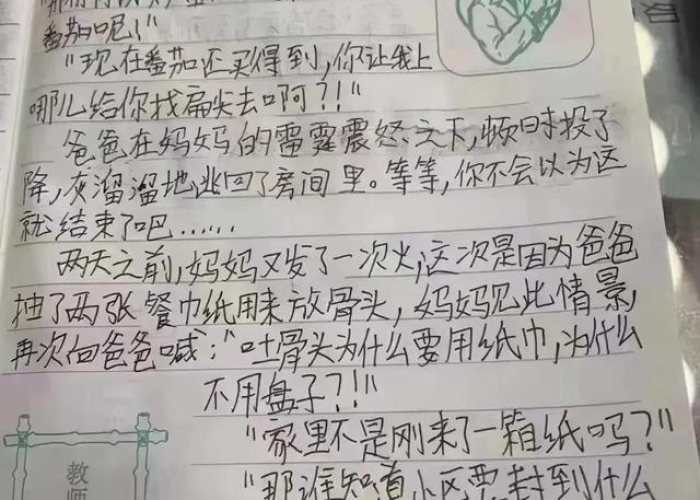 番茄呢！"
"现在番茄还买得到，你让我上
哪儿给你找扁尖去啊？！"
爸爸在妈妈的雷霆震怒之下，顿时投了
降，灰溜溜地逃回了房间里。等等，你不会以为这
就结束了吧……
两天之前，妈妈又发了一次火，这次是因为爸爸
抽了两张餐巾纸用来放骨头，妈妈见此情景，
再次向爸爸喊："吐骨头为什么要用纸巾，为什么
不用盘子？！"
"家里不是刚来了一箱纸吗？"
"那谁知道小区要封到什么
教师